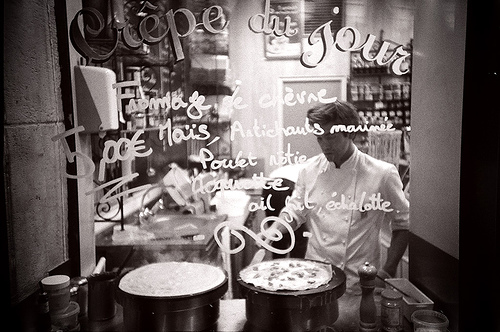 Crêpe du Jour
Fromage de chèvre
5,00€ Maïs, Artichauts marinée
Poulet rôtie
Roquette
ail frit, échalotte